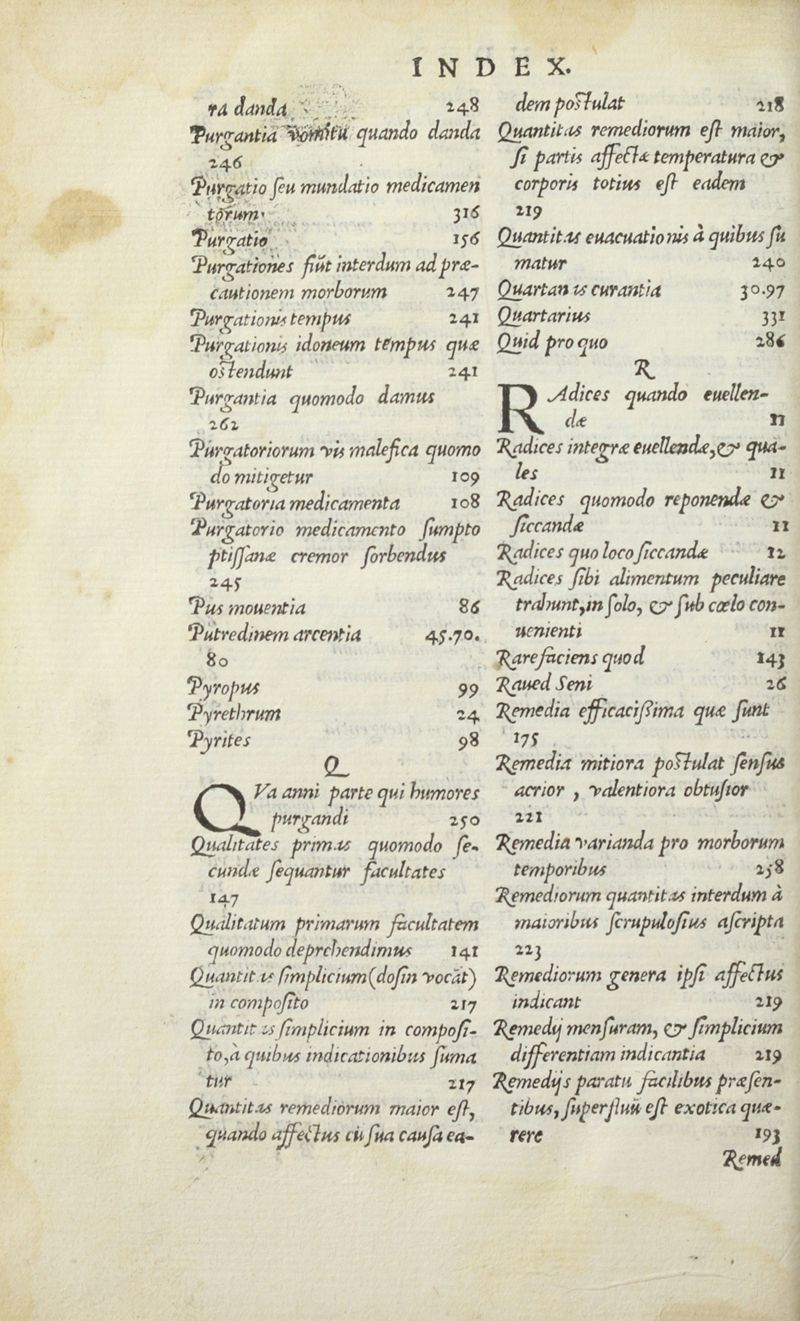 INDEX.
ra danda 248
Purgantia vomitu quando danda
246
Purgatio ſeu mundatio medicamen
torum 316
Purgatio 156
Purgationes fiūt interdum ad præ-
cautionem morborum 247
Purgationis tempus 241
Purgationis idoneum tempus quæ
oſtendunt 241
Purgantia quomodo damus
262
Purgatoriorum vis malefica quomo
do mitigetur 109
Purgatoria medicamenta 108
Purgatorio medicamento ſumpto
ptiſſanæ cremor ſorbendus
245
Pus mouentia 86
Putredinem arcentia 45.70.
80
Pyropus 99
Pyrethrum 24
Pyrites 98
Q
QVa anni parte qui humores
purgandi 250
Qualitates primas quomodo ſe-
cundæ ſequantur facultates
147
Qualitatum primarum facultatem
quomodo deprehendimus 141
Quantitas ſimplicium (doſin vocāt)
in compoſito 217
Quantitas ſimplicium in compoſi-
to, à quibus indicationibus ſuma
tur 217
Quantitas remediorum maior eſt,
quando affectus cū ſua cauſa ea-
dem poſtulat 218
Quantitas remediorum eſt maior,
ſi partis affectæ temperatura &
corporis totius eſt eadem
219
Quantitas euacuationis à quibus ſu
matur 240
Quartanas curantia 30.97
Quartarius 331
Quid pro quo 286
R
RAdices quando euellen-
dæ 11
Radices integræ euellendæ, & qua-
les 11
Radices quomodo reponendæ &
ſiccandæ 11
Radices quo loco ſiccandæ 12
Radices ſibi alimentum peculiare
trahunt, in ſolo, & ſub cœlo con-
uenienti 11
Rarefaciens quod 143
Raued Seni 26
Remedia efficaciſſima quæ ſunt
175
Remedia mitiora poſtulat ſenſus
acrior, valentiora obtuſior
221
Remedia varianda pro morborum
temporibus 258
Remediorum quantitas interdum à
maioribus ſcrupuloſius aſcripta
223
Remediorum genera ipſi affectus
indicant 219
Remedij menſuram, & ſimplicium
differentiam indicantia 219
Remedijs paratu facilibus præſen-
tibus, ſuperfluū eſt exotica quæ-
rere 193
Remed